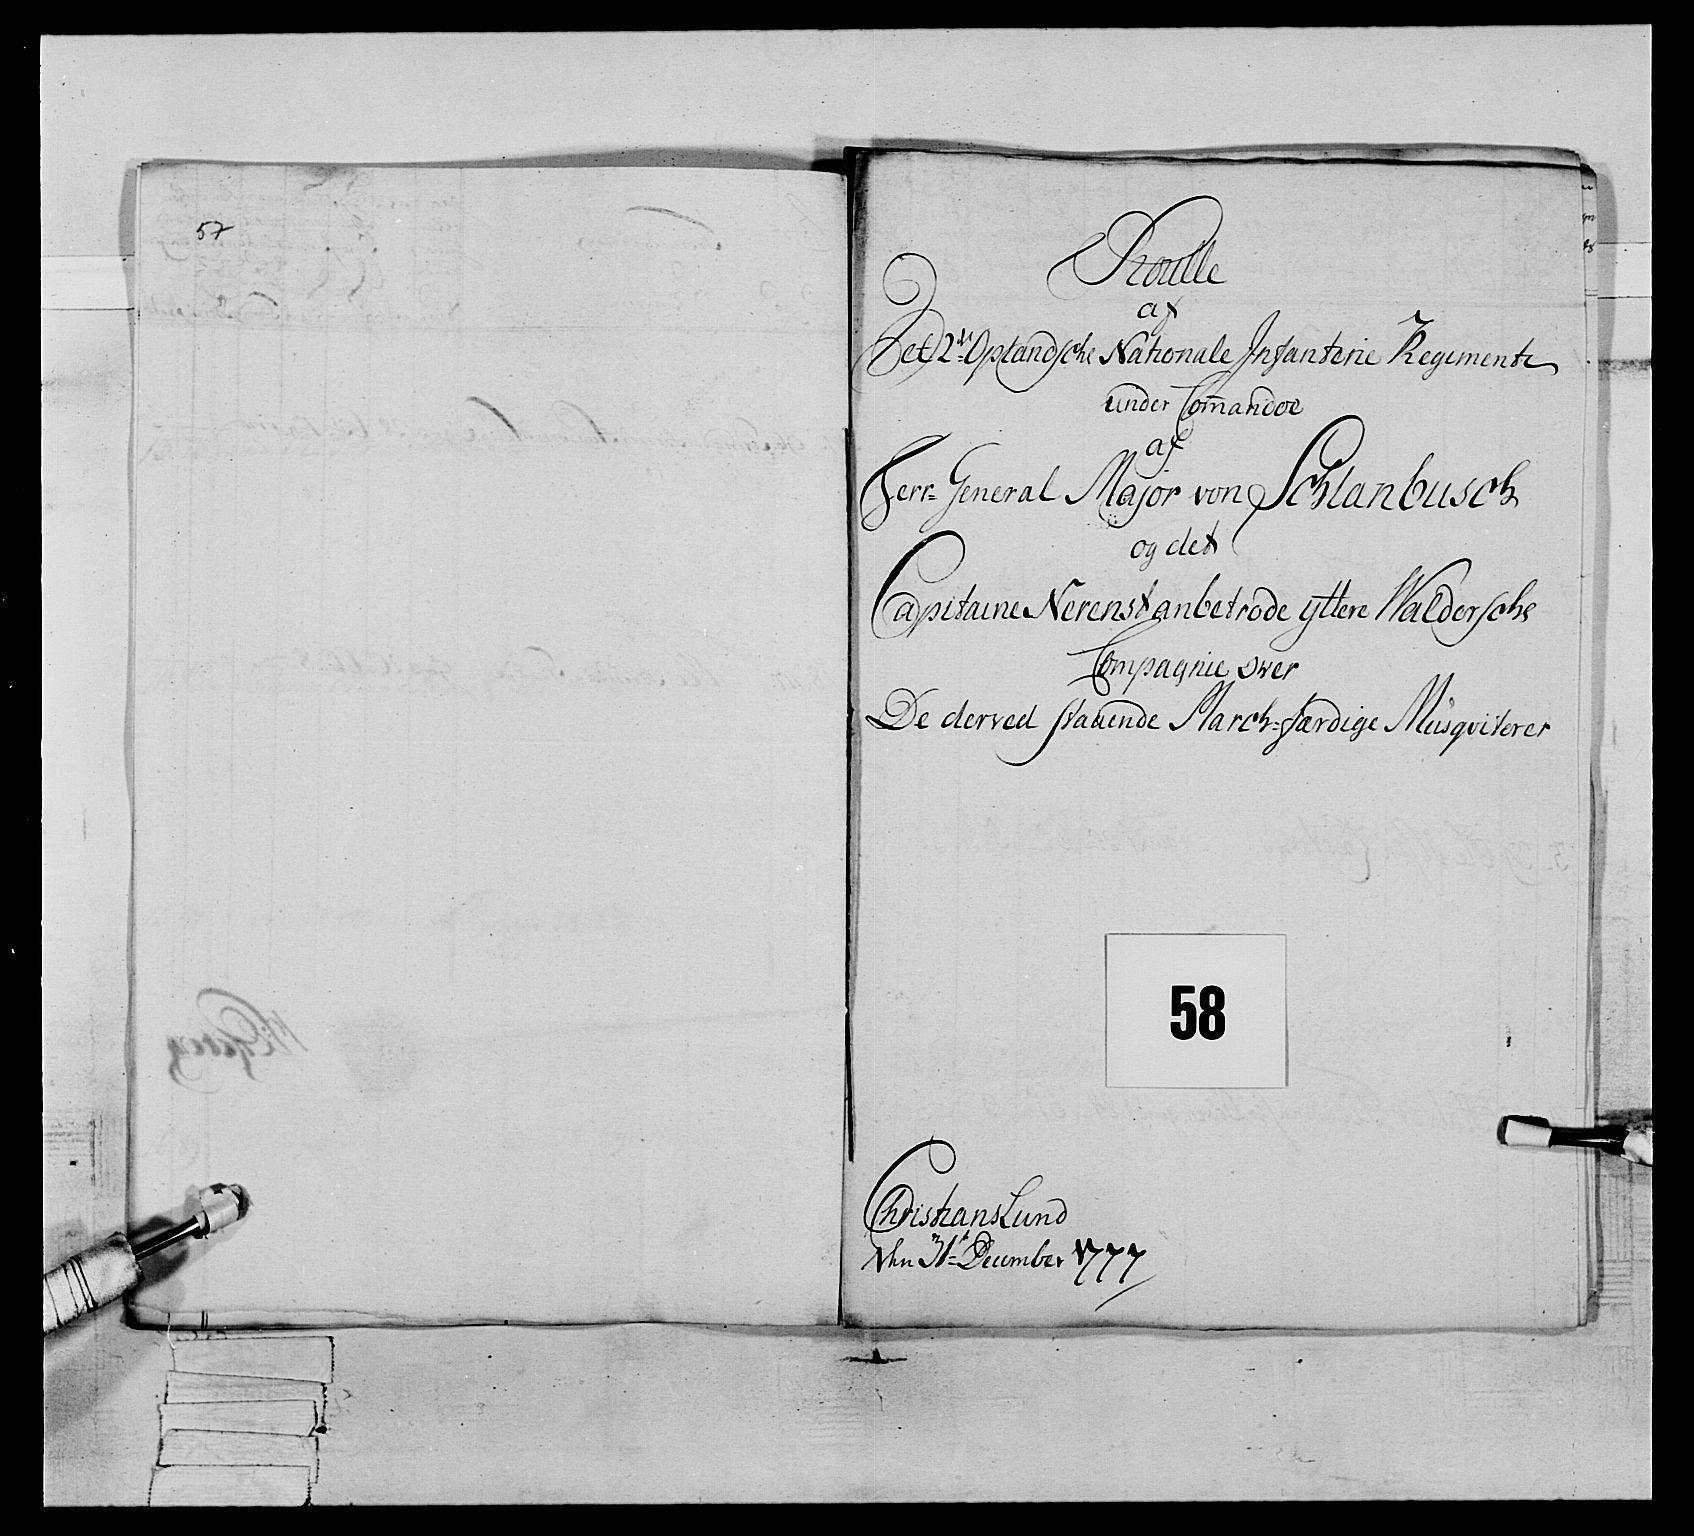 57
Roulle
af
Det 2de Oplandsche Nationale Infanterie Regimente
under Com̄andoe
af
Herr General Major von Schlanbusch
og det
Capitaine Nerenst anbetrode yttere Waldersche
Compagnie over
De derved staaende March-færdige Musqviterer
58
ChristiansLund
den 31te December 1777